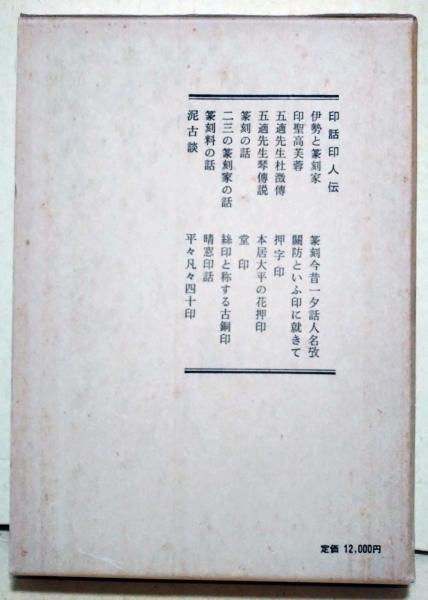 印話印人伝
伊勢と篆刻家
印聖高芙蓉
五適先生杜澂傳
五適先生琴傳説
篆刻の話
二三の篆刻家の話
篆刻料の話
泥古談
篆刻今昔一夕話人名攷
關防といふ印に就きて
押字印
本居大平の花押印
堂印
絲印と称する古銅印
晴窓印話
平々凡々四十印
定価 12,000円